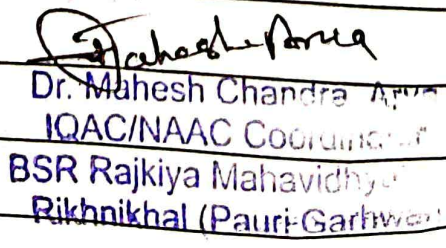 Mahesh Arya
Dr. Mahesh Chandra Arya
IQAC/NAAC Coordinator
BSR Rajkiya Mahavidhya
Rikhnikhal (Pauri-Garhwal